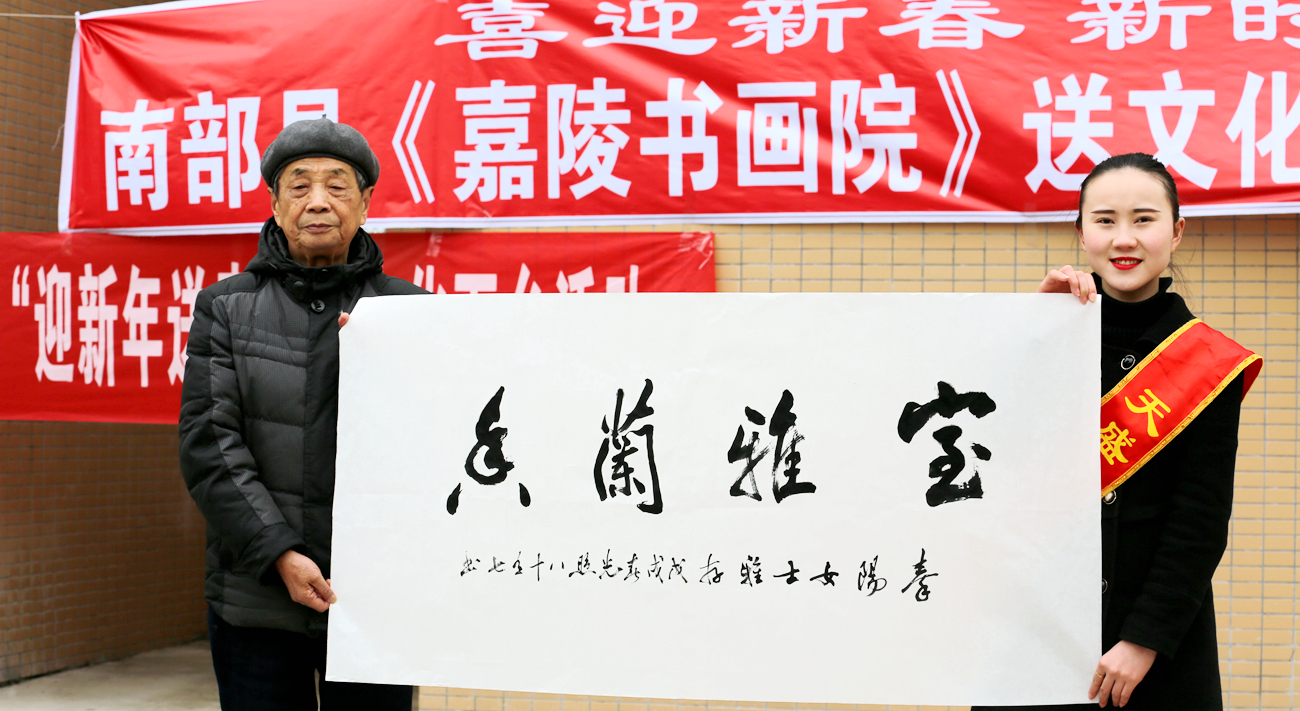 喜迎新春 新时
南部县《嘉陵书画院》送文化
“迎新年送
室雅蘭香
秦陽女士雅存 戊戌春
天盛